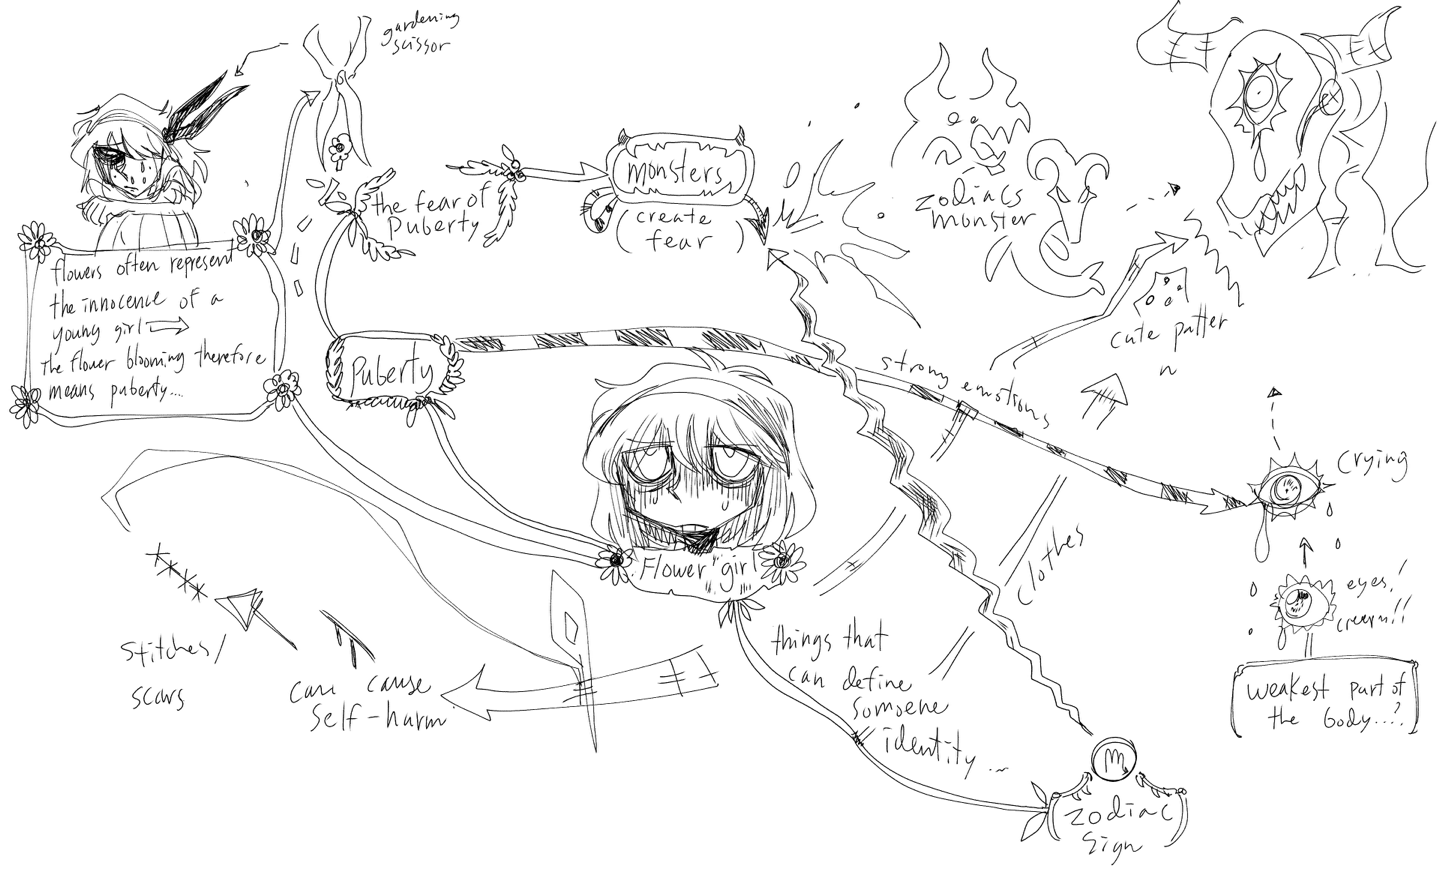 gardening
scissor
flowers often represent
the innocence of a
young girl
the flower blooming therefore
means puberty....
the fear of
Puberty
monsters
(create
fear)
zodiacs
monster
cute patter
n
Puberty
strong emotions
crying
clothes
Flower girl
eyes!
weakest part of
the body...?
things that
can define
somoene
identity...
stitches/
scars
can cause
self-harm
♏
zodiac
sign